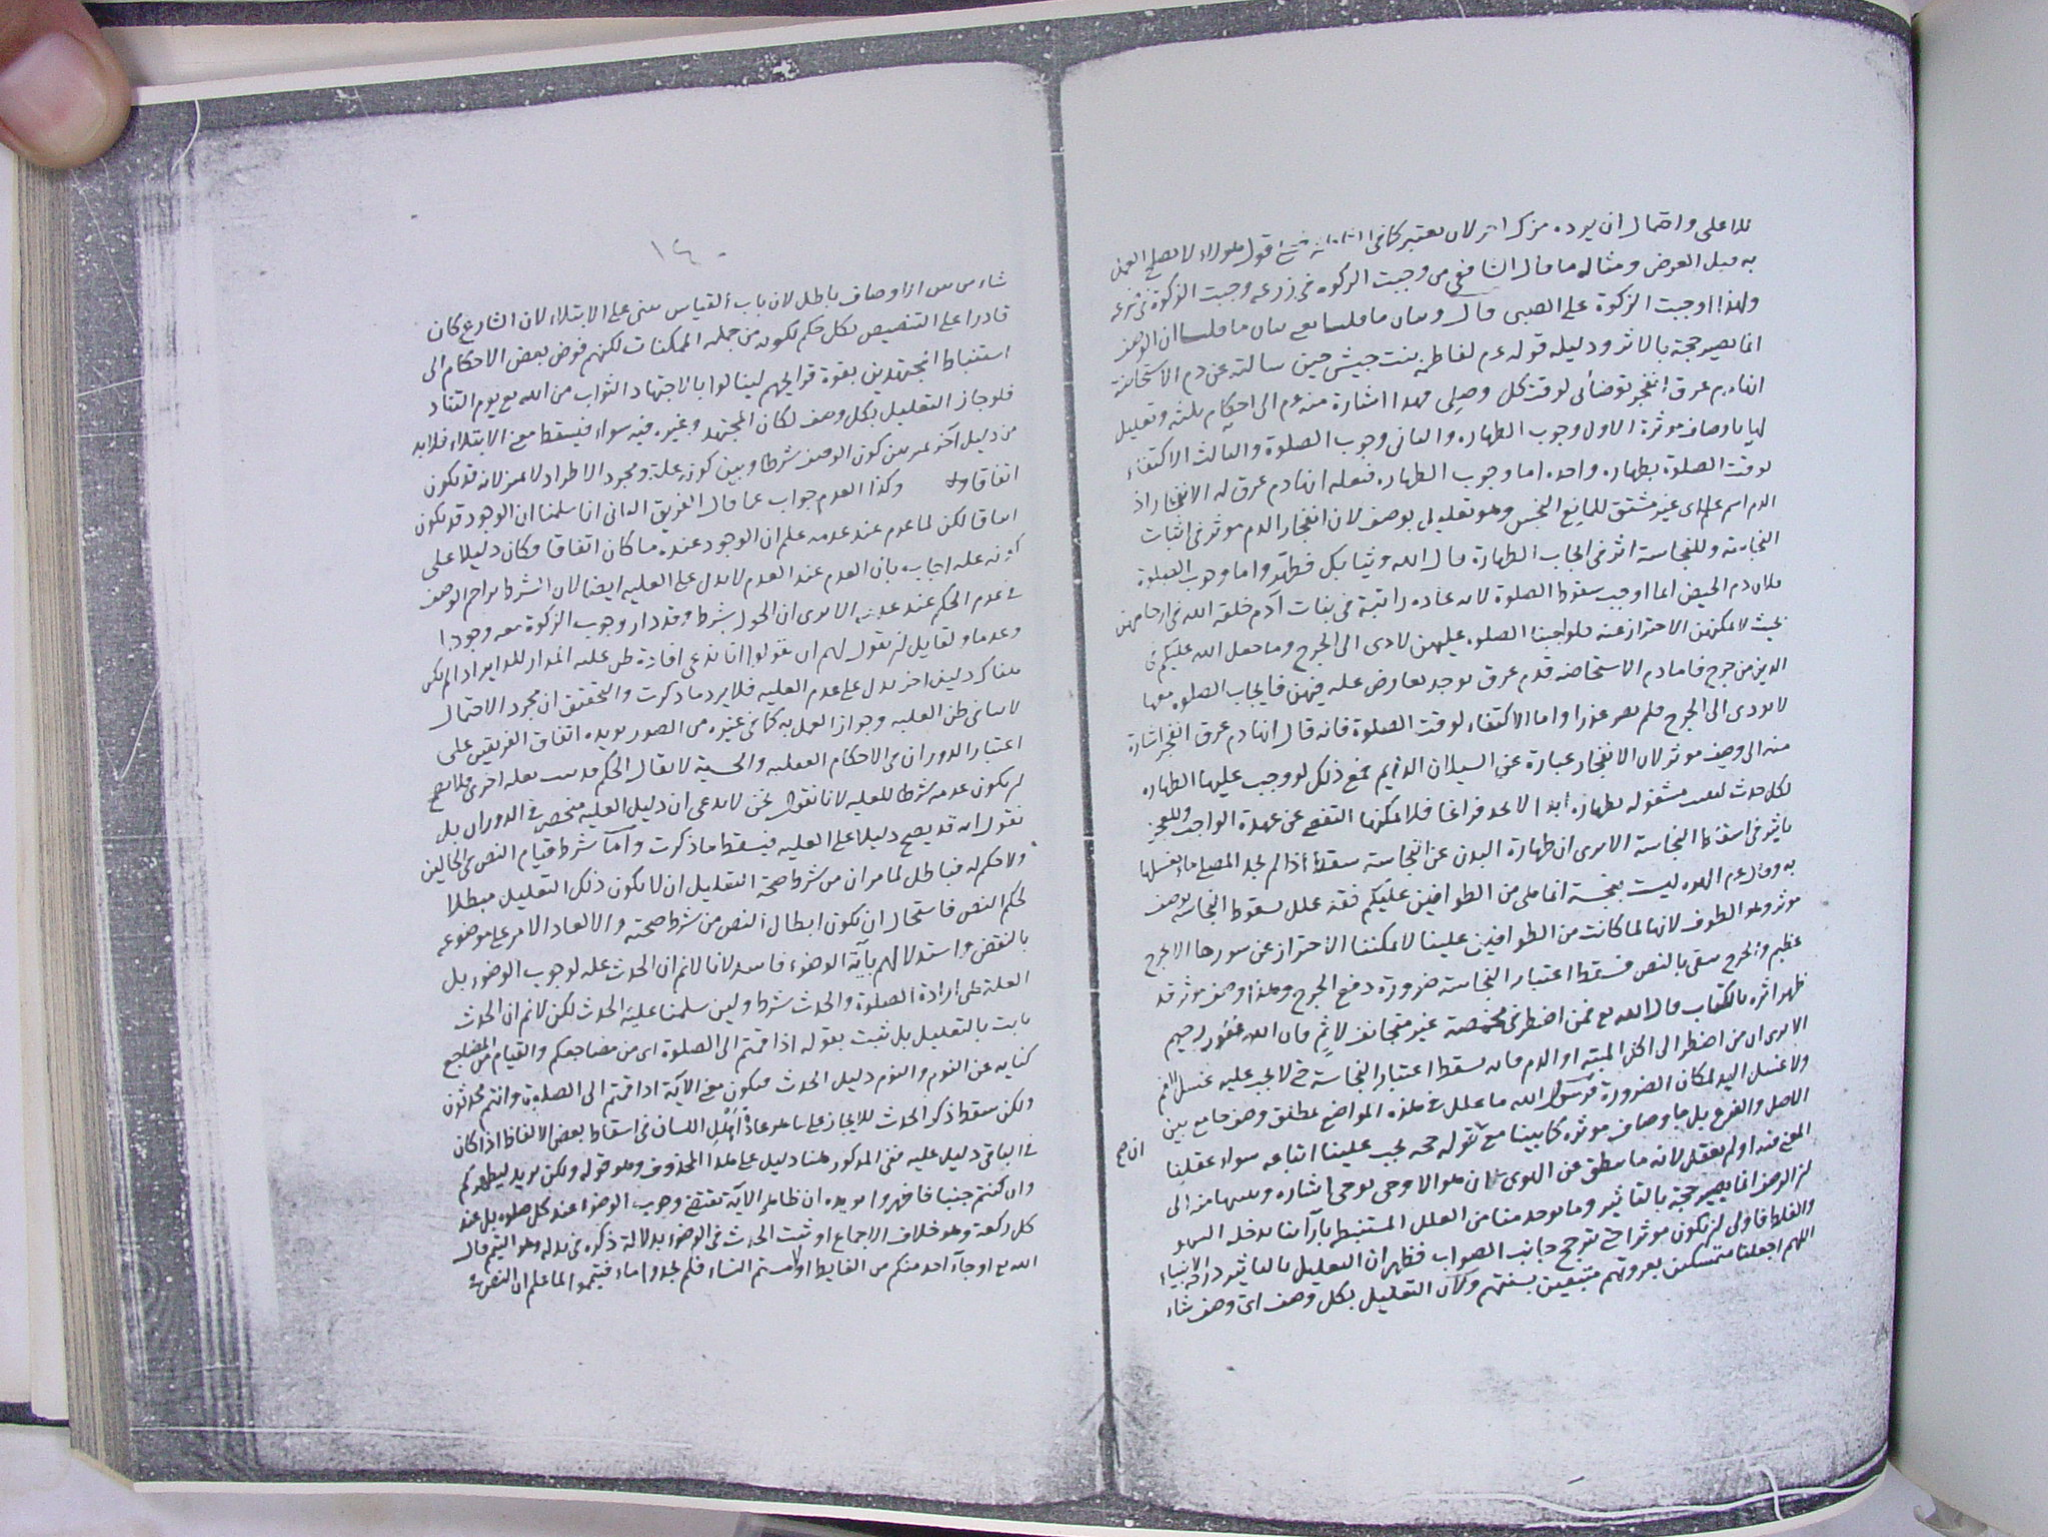 للاعلى واحتمال ان يوده مزكى اخر لان يعتبر كافى اقول هؤلاء لا يصلح العمل
به قبل العرض ومثاله ما قال الشافعى من وجبت الزكوة فى زرعه وجبت الزكوة فى
ولهذا اوجبت الزكوة على الصبى قال وبيان ما قلنا يعنى بيان ما قلنا ان الوصف
انما يصير حجة بالاثر ودليله قوله عم لفاطمة بنت حبيش حين سالته عن دم الاستحاضة
انها دم عرق انفجر توضأى لوقت كل وصلى وهذا اشارة منه عم الى احكام ثلثة وتعليل
لها باوصاف موثرة الاول وجوب الطهارة والثانى وجوب الصلوة والثالث الاكتفاء
لوقت الصلوة بطهارة واحدة اما وجوب الطهارة فبقوله انها دم عرق له الانفجار اذ
الدم اسم علم اى غير مشتق للمايع النجس وهو تعليل بوصف لان انفجار الدم موثر فى اثبات
النجاسة وللنجاسة اثر فى ايجاب الطهارة قال الله وثيابك فطهر واما وجوب الصلوة
فلان دم الحيض انما اوجب سقوط الصلوة لانه عادة راتبة فى بنات آدم خلقه الله فى ارحامهن
بحيث لا يمكنهن الاحتراز عنه فلو اجبنا الصلوة عليهن لادى الى الحرج وما جعل الله عليكم فى
الدين من حرج فاما دم الاستحاضة فدم عرق يوجد بعارض علة فيهن فايجاب الصلوة معها
لا يودى الى الحرج فلم يصر عذرا واما الاكتفاء لوقت الصلوة فانه قال انها دم عرق انفجر اشارة
منه الى وصف موثر لان الانفجار عبارة عن السيلان الدايم فمع ذلك لو وجب عليها الطهارة
لكل حدث لبقيت مشغولة بطهارة ابدا لا تجد فراغا فلا يمكنها التفصى عن عهدة الواجب وللعجز
تاثير فى اسقاط النجاسة الا يرى ان طهارة البدن عن النجاسة سقط اذا لم يجد المصلى ماء يغسلها
به وقال عم الهرة ليست بنجسة انما هى من الطوافين عليكم فقد علل سقوط النجاسة بوصف
موثر وهو الطوف لانها لما كانت من الطوافين علينا لا يمكننا الاحتراز عن سورها الا بحرج
عظيم والحرج منفى بالنص فسقط اعتبار النجاسة ضرورة دفع الحرج وهذا وصف موثر قد
ظهر اثره بالكتاب قال الله تع فمن اضطر فى مخمصة غير متجانف لاثم فان الله غفور رحيم
الا يرى ان من اضطر الى اكل الميتة او الدم فانه يسقط اعتبار النجاسة حتى لا يجب عليه غسل الفم
ولا غسل اليد لمكان الضرورة فرسول الله ما علل فى هذه المواضع بمطلق وصف جامع بين
الاصل والفرع بل باوصاف موثرة كما بينا مع ان قوله حجة يجب علينا اتباعه سواء عقلنا
ان صح
المعنى منه او لم يعقل لانه ما ينطق عن الهوى ان هو الا وحى يوحى اشارة وتنبيها منه الى
ان الوصف انما يصير حجة بالتاثير وما يوجد منا من العلل المستنبط بآرائنا يدخله السهو
والغلط فاولى ان يكون موثرا حتى يترجح جانب الصواب فظهر ان التعليل بالتاثير داب الانبياء
اللهم اجعلنا متمسكين بعروتهم متبعين بسنتهم ولان التعليل بكل وصف اى وصف شاء
١٤
شاء من بين الاوصاف باطل لان باب القياس مبنى على الابتلاء لان الشارع كان
قادرا على التنصيص بكل حكم لكونه من جملة الممكنات لكنه فوض بعض الاحكام الى
استنباط المجتهدين بقوة قرايحهم لينالوا بالاجتهاد الثواب من الله تع يوم التناد
فلو جاز التعليل بكل وصف لكان المجتهد وغيره فيه سواء فيسقط معنى الابتلاء فلا بد
من دليل آخر يميز بين كون الوصف شرطا وبين كونه علة ومجرد الاطراد لا يميز لانه قد يكون
اتفاقا وكذا العدم جواب عما قال الفريق الثانى انا سلمنا ان الوجود قد يكون
اتفاقا لكن لما عدم عند عدمه علم ان الوجود عنده ما كان اتفاقا وكان دليلا على
كونه علة اجاب بان العدم عند العدم لا يدل على العلية ايضا لان الشرط يزاحم الوصف
فى عدم الحكم عند عدمه الا يرى ان الحول شرط وقد دار وجوب الزكوة معه وجودا
وعدما ولقايل ان يقول لهم ان يقولوا انا ندعى افادة ظن علية المدار للداير اذا لم يكن
هناك دليل اخر يدل على عدم العلية فلا يرد ما ذكرت والتحقيق ان مجرد الاحتمال
لا ينافى ظن العلية وجواز العمل به كما فى غيره من الصور يويده اتفاق الفريقين على
اعتبار الدوران فى الاحكام العقلية والحسية لا يقال الحكم قد يثبت بعلة اخرى فلا يصح
ان يكون عدمه شرطا للعلية لانا نقول نحن لا ندعى ان دليل العلية منحصر فى الدوران بل
نقول انه قد يصح دليلا على العلية فيسقط ما ذكرت واما شرط قيام النص فى الحالين
ولا حكم له فباطل لما مر ان من شرط صحة التعليل ان لا يكون ذلك التعليل مبطلا
لحكم النص فاستحال ان يكون ابطال النص من شرط صحته والا لعاد الامر على موضوعه
بالنقض واستدلالهم بآية الوضوء فاسد لانا لا نم ان الحدث علة لوجوب الوضوء بل
العلة هى ارادة الصلوة والحدث شرط ولين سلمنا علية الحدث لكن لا نم ان الحدث
ثابت بالتعليل بل ثبت بقوله اذا قمتم الى الصلوة اى من مضاجعكم والقيام من المضاجع
كناية عن النوم والنوم دليل الحدث فيكون معنى الآية اذا قمتم الى الصلوة وانتم محدثون
ولكن سقط ذكر الحدث للايجاز على ما هو عادة اهل اللسان فى اسقاط بعض الالفاظ اذا كان
فى الباقى دليل عليه ففى المذكور هنا دليل على هذا المحذوف وهو قوله ولكن يريد ليطهركم
وان كنتم جنبا فاطهروا يويده ان ظاهر الآية تقتضى وجوب الوضوء عند كل صلوة بل عند
كل ركعة وهو خلاف الاجماع او ثبت الحدث فى الوضوء بدلالة ذكره فى بدله وهو التيمم قال
الله تع او جآء احد منكم من الغايط او لامستم النساء فلم تجدوا ماء فتيمموا لما علم ان النص فى